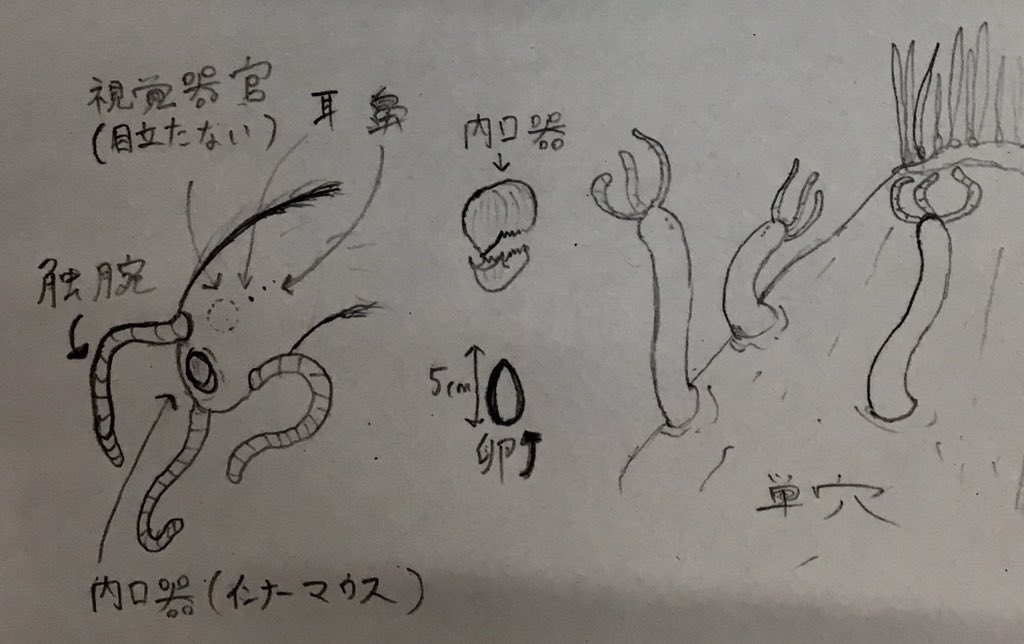 視覚器官
(目立たない)
耳
鼻
触腕
内口器(インナーマウス)
内口器
5cm
卵
単穴